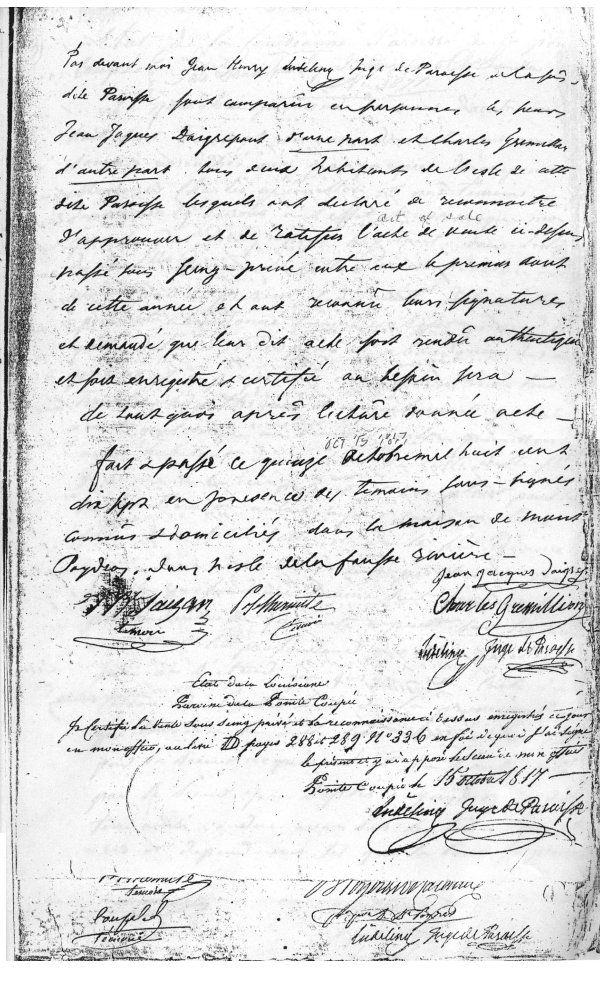 Par devant moi Jean Henry Ludeling Juge de Paroisse de la sus
dite Paroisse sont comparûs en personnes les sieurs
Jean Jaques Daigrepont d'une part et Charles Gremillion
d'autre part tous deux habitants de l'isle de cette
dite Paroisse lesquels ont declaré de reconnoitre
act of sale
d'approuver et de ratifier l'acte de vente ci-dessus
passé sous seing-privé entre eux le premier Aout
de cette année et ont reconnû leurs signatures
et demandé que leur dit acte soit rendû authentique
et soit enregistré & certifié au besoin sera —
de tout quoi après lecture donnée acte —
oct 15 1817
fait & passé ce quinze Octobre mil huit cent
dix sept en presence des temoins sous-signés
connûs & domiciliés dans la maison de
Poydras, dans l'isle de la fausse rivière —
Jean Jacques Daigre
Saizan
temoin
Charles Gremillion
Ludeling Juge de Paroisse
Etat de la Louisiane
Paroisse de la Pointe Coupée
Je Certifie la Vente sous seing privé et la reconnaissance ci dessus enregistrés ce jour
en mon office, au livre D pages 288 et 289 No 336 en foi de quoi j'ai signé
le présent et y ai apposé le sceau de mon office
Pointe Coupée le 15 octobre 1817 —
Ludeling Juge de Paroisse
temoin
temoin
Ludeling Juge de Paroisse